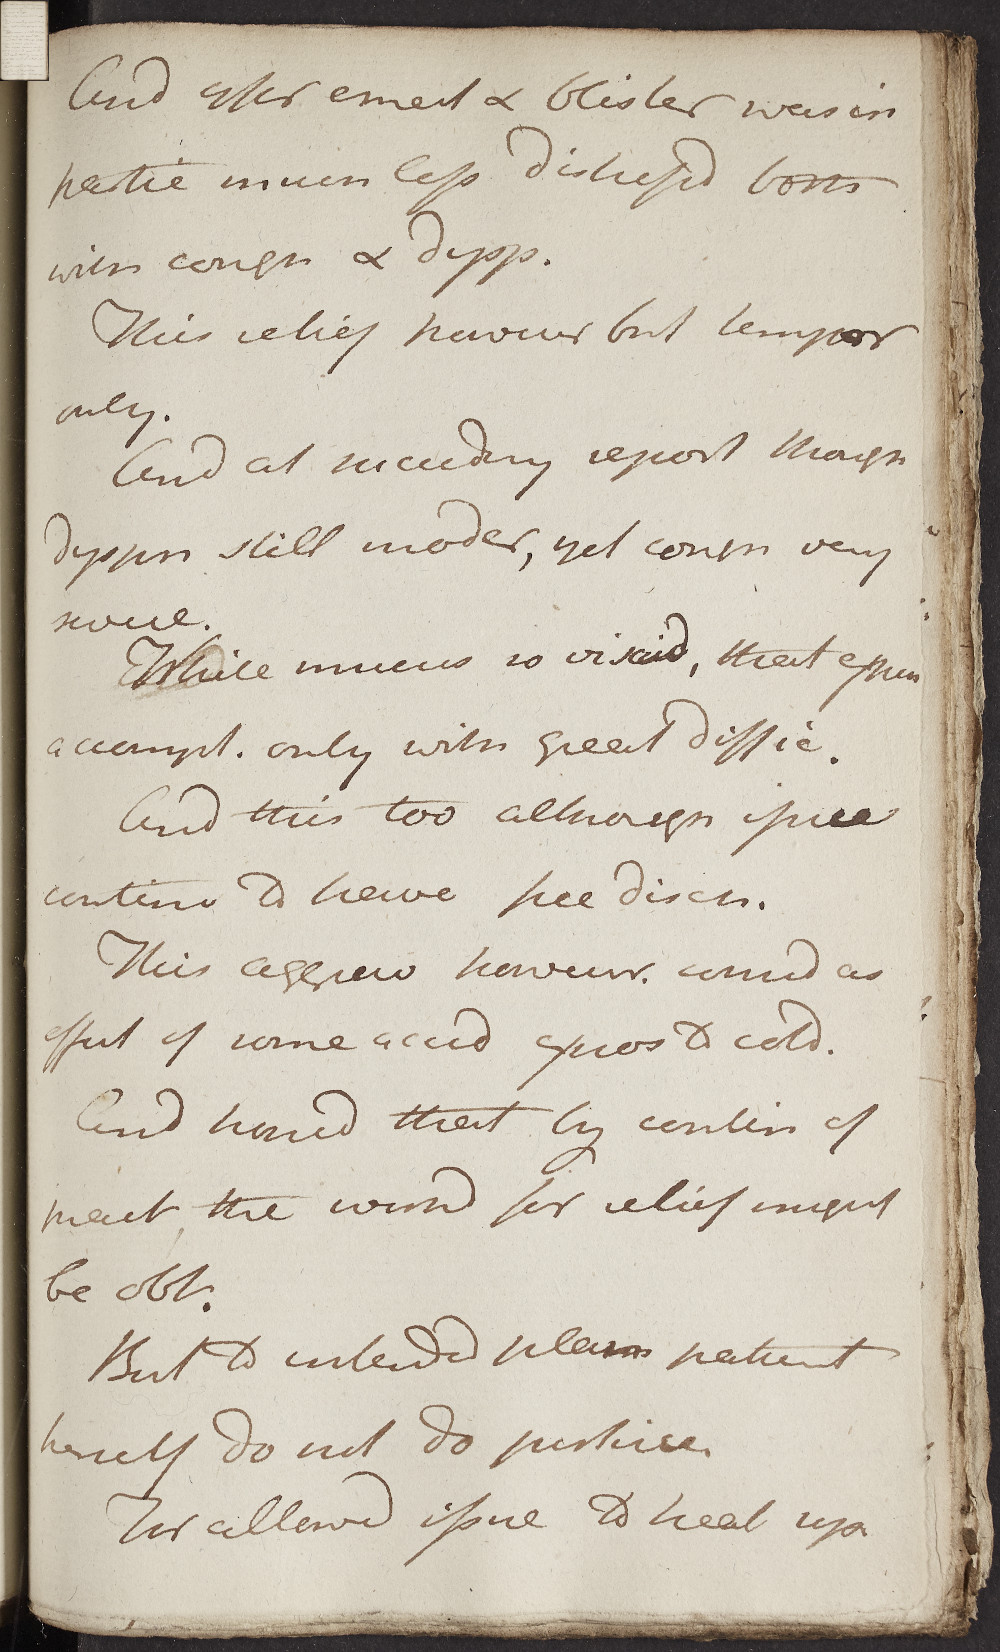 And after emet & blister was in
partic much less distressd both
with cough & dysp.
This relief however but tempor
only.
And at succeeding report though
dyspn still moder, yet cough very
severe.
While mucus so viscid, that expec
accompl. only with great diffic.
And this too although issue
contin to have free disch.
This aggrav however. consid as
effect of some accid expos to cold.
And hoped that by contin of
pract the wound for relief might
be obt.
But to intended plan patient
herself do not do justice.
For allowed issue to heal up